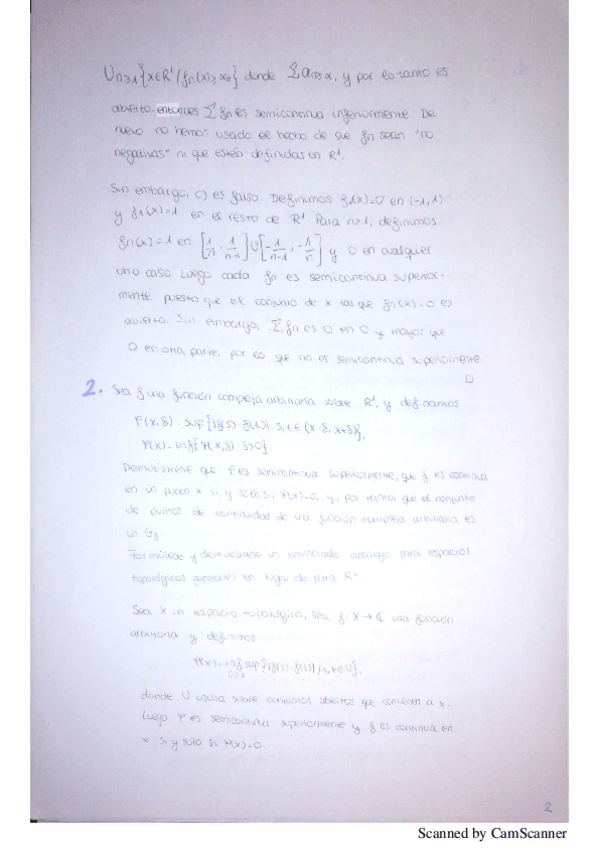 Un≥1{x∈R¹/fn(x)≥αn} donde Σαn≥α, y por lo tanto es
abierto, entonces Σ fn es semicontinua inferiormente. De
nuevo no hemos usado el hecho de que fn sean "no
negativas" ni que estén definidas en R¹.
Sin embargo, c) es falso. Definimos f1(x)=0 en (-1,1)
y f1(x)=1 en el resto de R¹. Para n>1, definimos
fn(x)=1 en [1/n, 1/n-1]∪[-1/n-1, -1/n] y 0 en cualquier
otro caso. Luego cada fn es semicontinua superior-
mente puesto que el conjunto de x tal que fn(x)=0 es
abierto. Sin embargo, Σ fn es 0 en 0 y mayor que
0 en otra parte, por lo que no es semicontinua superiormente
□
2. Sea f una función compleja arbitraria sobre R¹, y definamos
φ(x,δ)=sup{|f(s)-f(t)|: s,t∈(x-δ,x+δ)},
φ(x)=inf{φ(x,δ): δ>0}
Demuéstrese que φ es semicontinua superiormente, que f es continua
en un punto x si, y sólo si, φ(x)=0, y, por tanto, que el conjunto
de puntos de continuidad de una función compleja arbitraria es
un Gδ.
Formúlese y demuéstrese un enunciado análogo para espacios
topológicos generales en lugar de para R¹
Sea X un espacio topológico, sea f: X→ℂ una función
arbitraria y definimos
φ(x)=inf sup{|f(s)-f(t)|/s,t∈U},
U∋x
donde U oscila sobre conjuntos abiertos que contienen a x.
Luego φ es semicontinua superiormente y f es continua en
x si y sólo si φ(x)=0.
2
Scanned by CamScanner